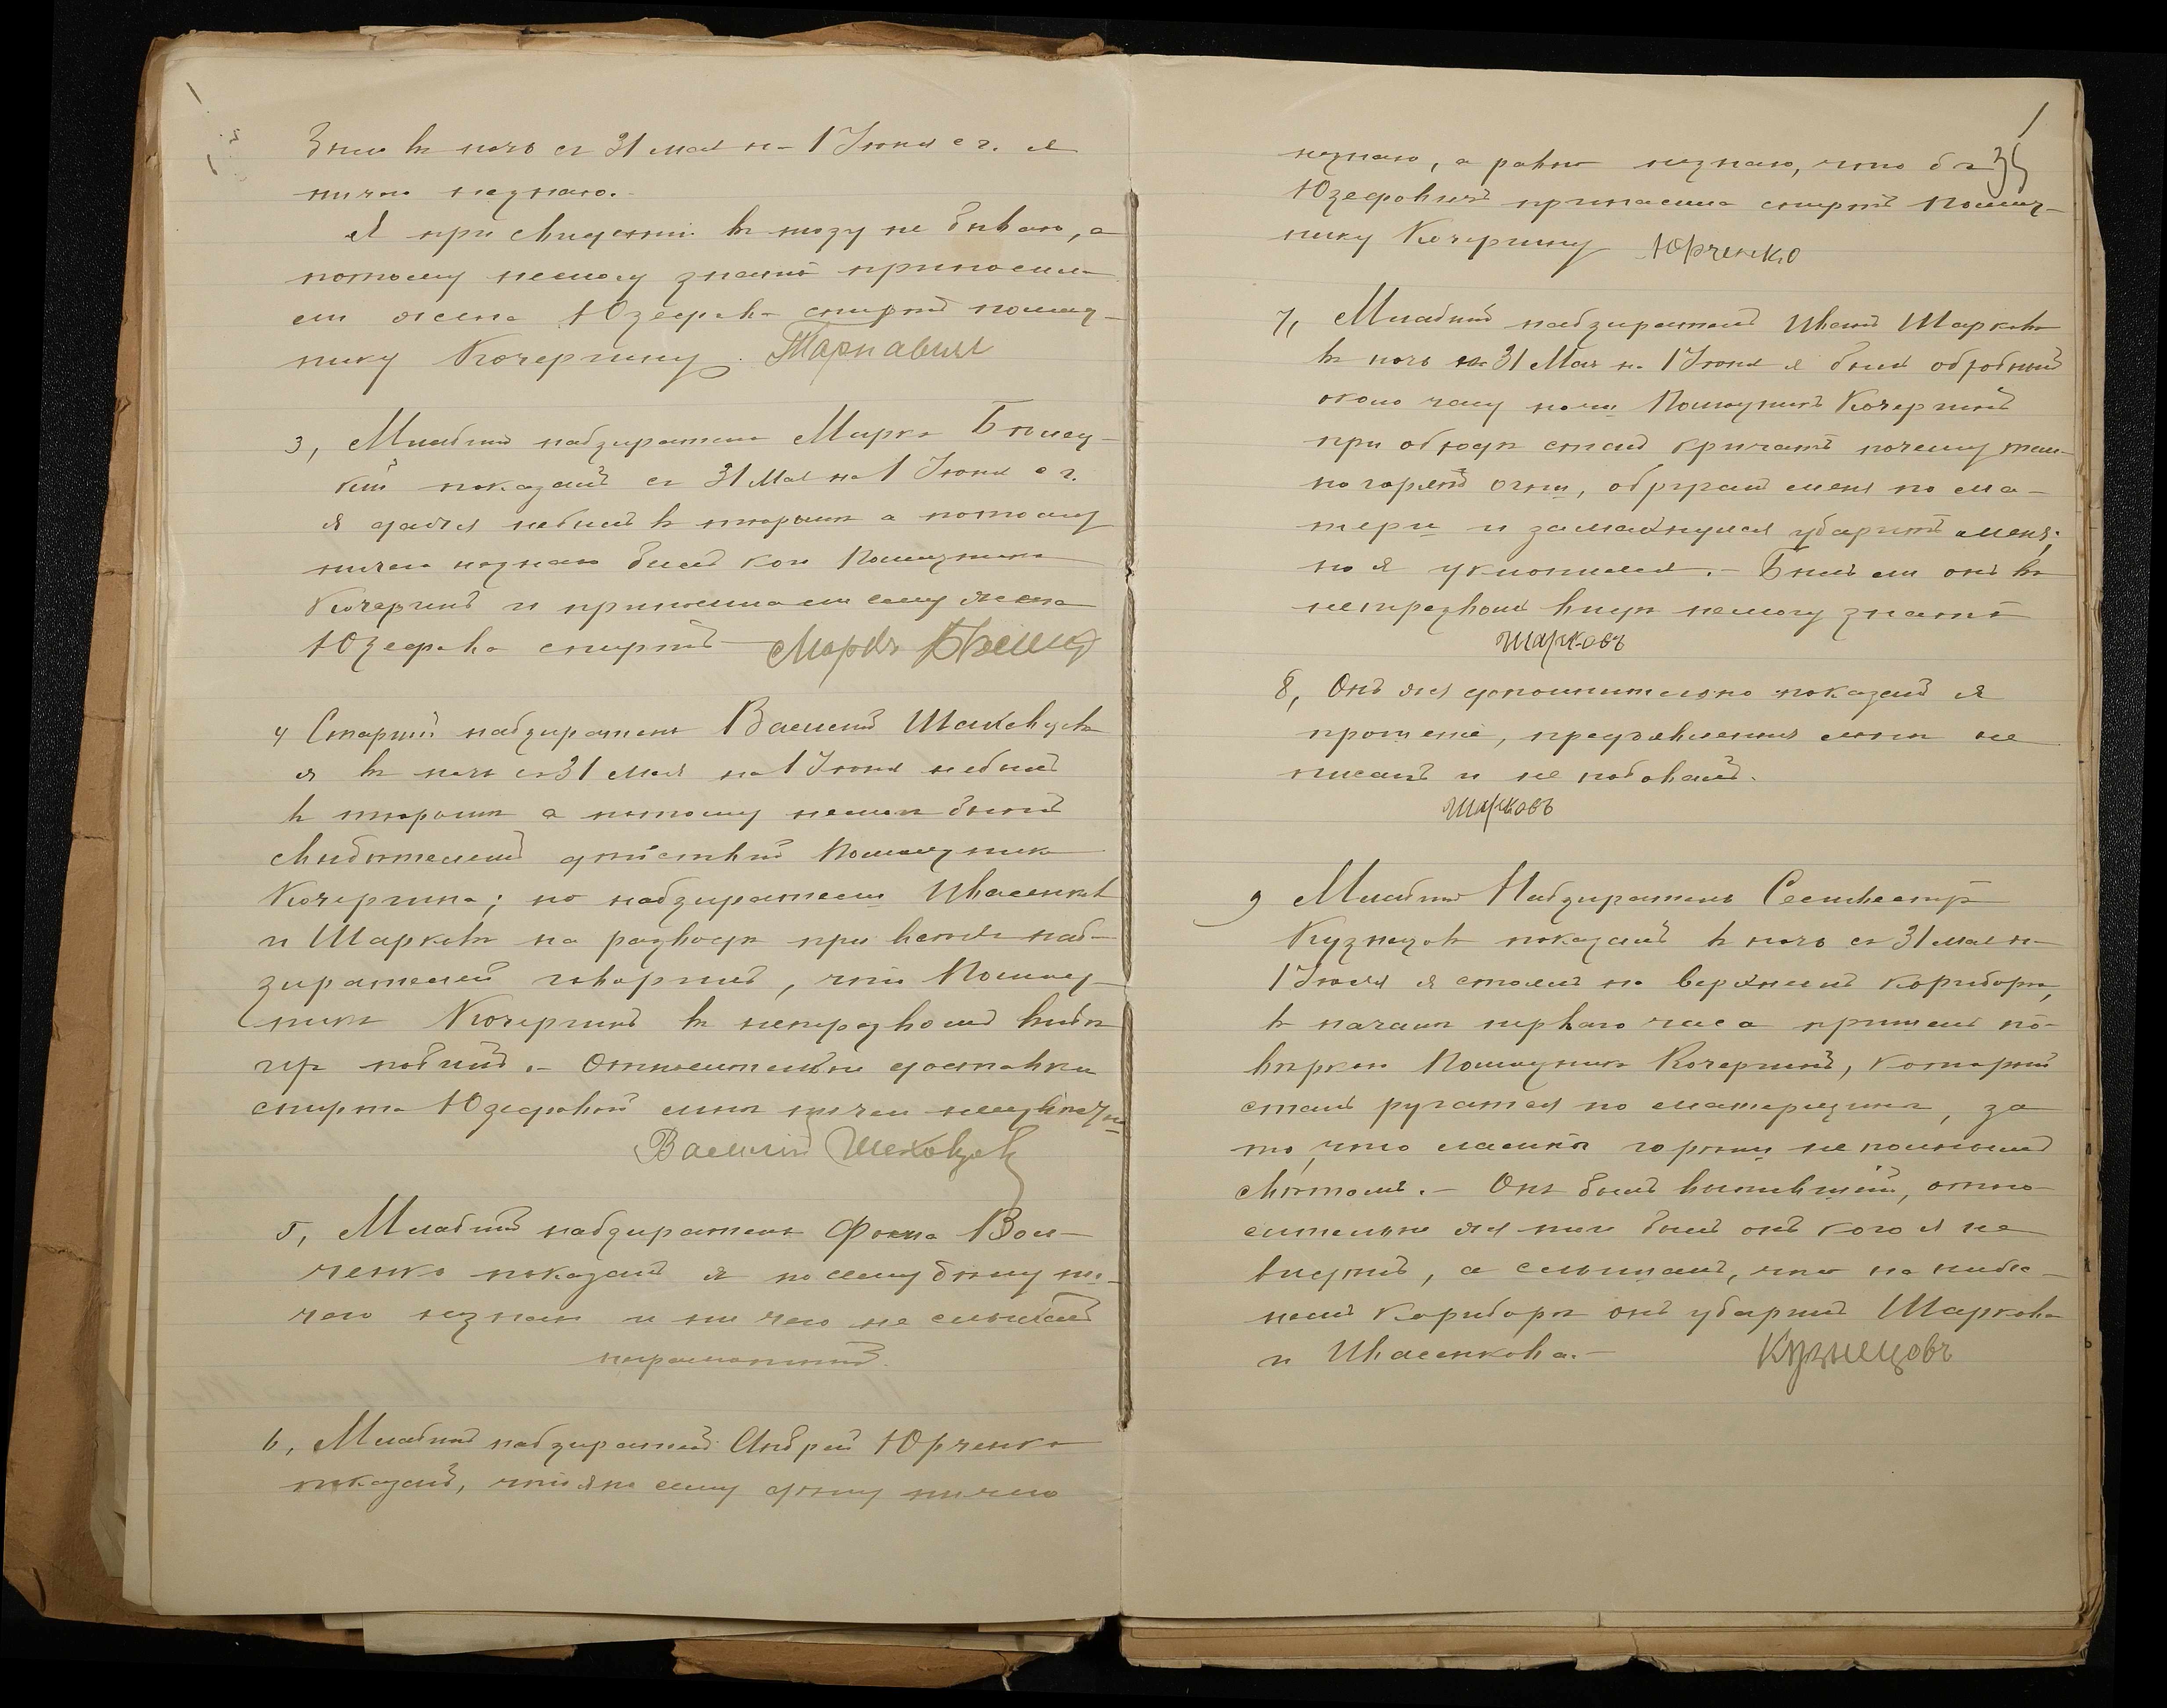 было въ ночь съ 31 мая на 1 Іюня с г. я
ничего незнаю.
Я при свиданіи въ тюрьму не бываю, а
потому немогу знать приносила
ли жена Юзефова спиртъ помощ-
нику Кочергину. Тарнавскій
3, Младшій надзиратель Марко Бѣлец-
кій показалъ съ 31 Мая на 1 Іюня с г.
я даже небылъ въ тюрьмѣ а потому
ничего незнаю билъ кого Помощникъ
Кочергинъ и приносила ли ему жена
Юзефова спиртъ Марко Бѣлец
4 Старшій надзиратель Василій Шаховцовъ
я въ ночь съ 31 мая на 1 Іюня небылъ
въ тюрьмѣ а потому немогъ быть
свидѣтелемъ дѣйствій Помощника
Кочергина; но надзиратели Ивасенковъ
и Шарковъ на разводѣ при всѣхъ над-
зирателей говорили, что Помощ-
никъ Кочергинъ въ нетрезвомъ видѣ
ихъ побилъ. – Относительно доставки
спирта Юзефовой мнѣ ничего неизвѣстно
Василій Шеховцовъ
5, Младшій надзиратель Фома Вол-
ченко показалъ я по сему дѣлу ни-
чего незнаю и ни чего не слыхалъ
неграмотный.
6, Младшій надзиратель Андрей Юрченко
показалъ, что я по сему дѣлу ничего
35
незнаю, а равно незнаю, что бъ
Юзефовичъ приносила спиртъ Помощ-
нику Кочергину Юрченко
7, Младшій надзиратель Иванъ Шарковъ
въ ночь на 31 Мая на 1 Іюня я былъ
около часу ночи Помощникъ Кочергинъ
при обходѣ сталъ кричать почему тем-
но горятъ огни, обругалъ меня по ма-
тери и замахнулся ударить меня;
но я уклонился. – Былъ ли онъ въ
нетрезвомъ видѣ немогу знать
Шарковъ
8, Онъ же дополнительно показалъ я
прошеніе, предъявленное мнѣ не
писалъ и не подавалъ.
Шарковъ
9 Младшій Надзиратель Сельвестръ
Кузнецовъ показалъ въ ночь съ 31 мая на
1 Іюня я стоялъ на верхнемъ коридорѣ,
въ началѣ перваго часа пришелъ по-
вѣркою Помощникъ Кочергинъ, который
сталъ ругатся по матерщинѣ, за
то, что лампы горѣли не полнымъ
свѣтомъ. – Онъ былъ выпивший, отно-
сительно же того билъ онъ кого я не
видѣлъ, а слышалъ, что на ниж-
немъ коридорѣ онъ ударилъ Шаркова
и Ивасенкова. – Кузнецовъ